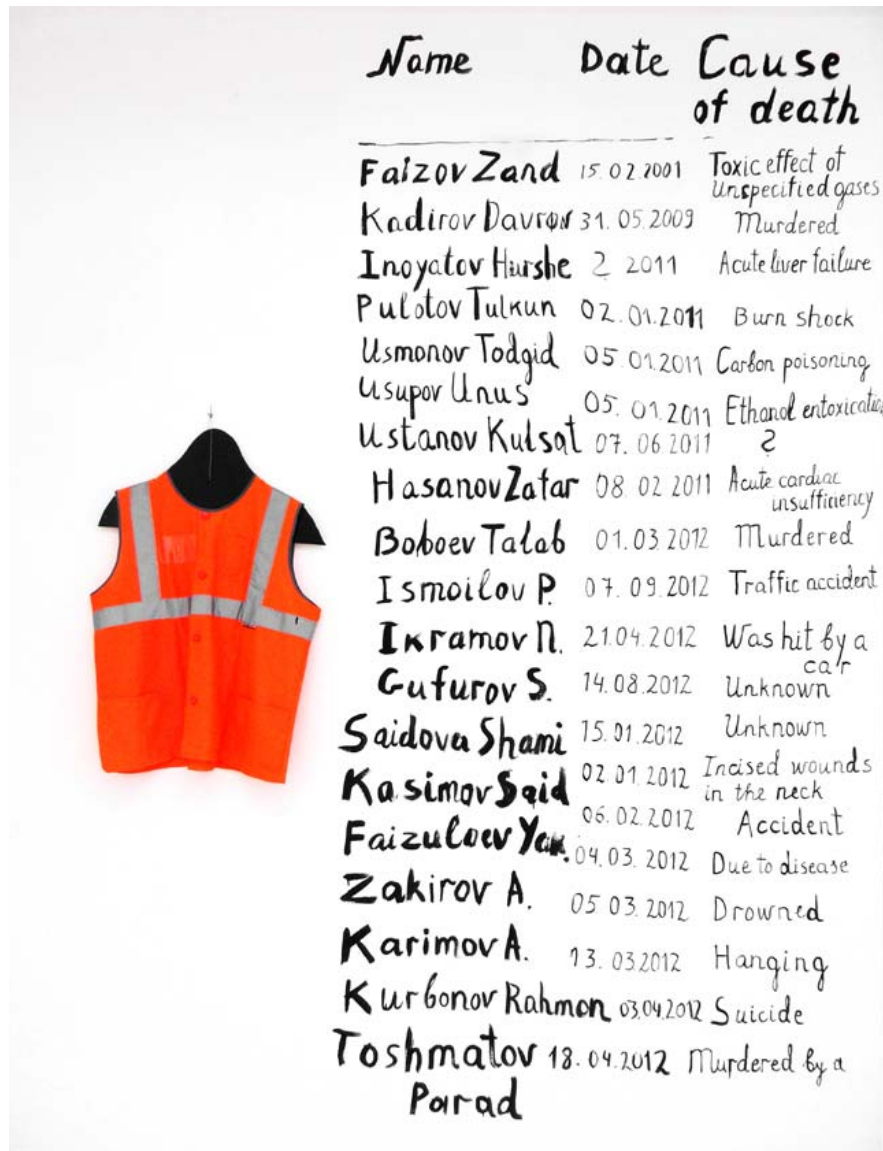 Name Date Cause
of death
Faizov Zand 15.02.2001 Toxic effect of
Unspecified gases
Kadirov Davron 31.05.2009 Murdered
Inoyatov Hurshe ? 2011 Acute liver failure
Pulotov Tulkun 02.01.2011 Burn shock
Usmonov Todgid 05.01.2011 Carbon poisoning
Usupov Unus 05.01.2011 Ethanol entoxicatio
Ustanov Kulsat 07.06.2011 ?
Hasanov Zafar 08.02.2011 Acute cardiac
insufficiency
Boboev Talab 01.03.2012 Murdered
Ismoilov P. 07.09.2012 Traffic accident
Ikramov N. 21.04.2012 Was hit by a
car
Gufurov S. 14.08.2012 Unknown
Saidova Shami 15.01.2012 Unknown
Kasimov Said 02.01.2012 Incised wounds
in the neck
Faizuloev 06.02.2012 Accident
04.03.2012 Due to disease
Zakirov A. 05 03.2012 Drowned
Karimov A. 13.03.2012 Hanging
Kurbonov Rahmon 03.04.2012 Suicide
Toshmatov 18.04.2012 Murdered by a
Parad